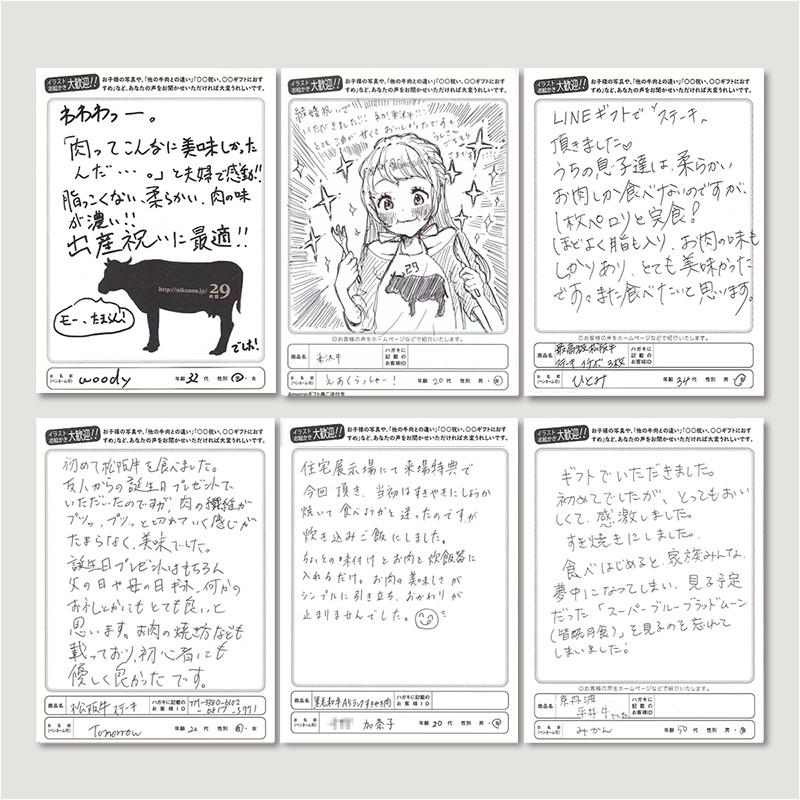 イラストお絵かき大歓迎!!
お子様の写真や、「他の牛肉との違い」「○○祝い、○○ギフトにおすすめ」など、あなたの声をお聞かせいただければ大変うれしいです。
わわわっー。
「肉ってこんなに美味しかった
んだ…。」と夫婦で感動!!
脂っこくない、柔らかい、肉の味
が濃い!!
出産祝いに最適!!
http://nikuzou.jp/ 29
モー、たまらん!
でしょ!
お名前(ペンネーム可)
woody
年齢 32 代 性別 男・女
イラストお絵かき大歓迎!!
お子様の写真や、「他の牛肉との違い」「○○祝い、○○ギフトにおすすめ」など、あなたの声をお聞かせいただければ大変うれしいです。
結婚祝いで
いただきました!!!
とても油が甘くておいしかったです。
29
○お客様の声をホームページなどで紹介いたします。
商品名 米沢牛
ハガキに記載のお客様ID
お名前(ペンネーム可) えあくらっしゃー!
年齢 20 代 性別 男・女
イラストお絵かき大歓迎!!
お子様の写真や、「他の牛肉との違い」「○○祝い、○○ギフトにおすすめ」など、あなたの声をお聞かせいただければ大変うれしいです。
LINEギフトで"ステーキ"
頂きました♡
うちの息子達は、柔らかい
お肉しか食べないのですが、
1枚ペロリと完食!
ほどよく脂も入り、お肉の味も
しっかりあり、とても美味かった
です。また食べたいと思います。
○お客様の声をホームページなどで紹介いたします。
商品名 最高級松阪牛
ステーキ イチボ 3枚
ハガキに記載のお客様ID
お名前(ペンネーム可) ひとみ
年齢 34 代 性別 男・女
イラストお絵かき大歓迎!!
お子様の写真や、「他の牛肉との違い」「○○祝い、○○ギフトにおすすめ」など、あなたの声をお聞かせいただければ大変うれしいです。
初めて松阪牛を食べました。
友人からの誕生日プレゼントで
いただいたのですが、肉の繊維が
プツッ、プツッと切れていく感じが
たまらなく、美味でした。
誕生日プレゼントはもちろん
父の日や母の日ギフト、何かの
お礼とかにもとても良いと
思います。お肉の焼き方なども
載っており、初心者にも
優しく良かったです。
商品名 松阪牛ステーキ
ハガキに記載のお客様ID
お名前(ペンネーム可) Tomorrow
年齢 20 代 性別 男・女
イラストお絵かき大歓迎!!
お子様の写真や、「他の牛肉との違い」「○○祝い、○○ギフトにおすすめ」など、あなたの声をお聞かせいただければ大変うれしいです。
住宅展示場にて来場特典で
今回頂き、当初はすきやきにしようか
焼いて食べようかと迷ったのですが
炊き込みご飯にしました。
ちょっとの味付けとお肉を炊飯器に
入れるだけ。お肉の美味しさが
シンプルに引き立ち、おかわりが
止まりませんでした。
商品名 黒毛和牛A5ランクすきやき肉
ハガキに記載のお客様ID
お名前(ペンネーム可) 加奈子
年齢 20 代 性別 男・女
イラストお絵かき大歓迎!!
お子様の写真や、「他の牛肉との違い」「○○祝い、○○ギフトにおすすめ」など、あなたの声をお聞かせいただければ大変うれしいです。
ギフトでいただきました。
初めてでしたが、とってもおいし
しくて、感激しました。
すき焼きにしました。
食べはじめると、家族みんな、
夢中になってしまい、見る予定
だった「スーパーブルーブラッドムーン
(皆既月食)」を見るのを忘れて
しまいました!
○お客様の声をホームページなどで紹介いたします。
商品名 京丹波
平井牛でした
ハガキに記載のお客様ID
お名前(ペンネーム可) みかん
年齢 50 代 性別 男・女